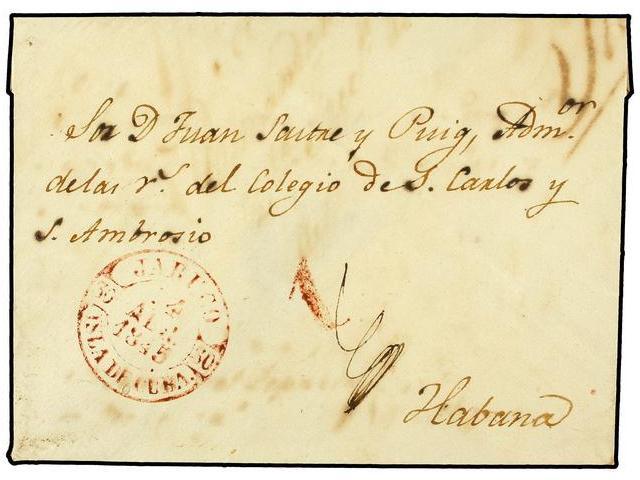 Sor D Juan Sastre y Puig, Admor.
de las rs. del Colegio de S. Carlos y
S. Ambrosio
JARUCO
ABR
1845
ISLA DE CUBA
Habana